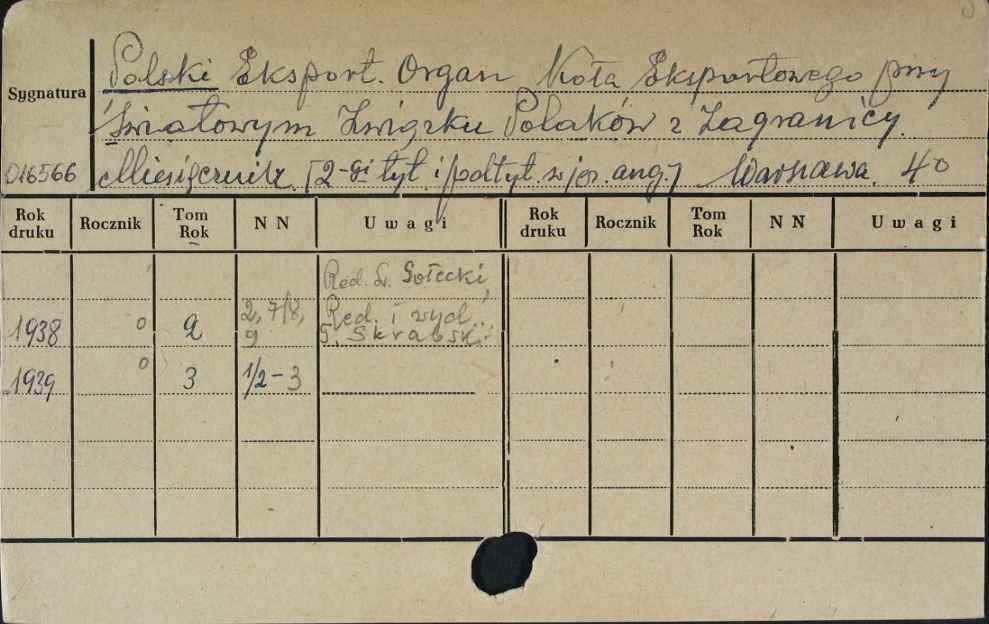 Polski Eksport. Organ Koła Eksportowego przy
Sygnatura
Światowym Związku Polaków z Zagranicy.
016566 Miesięcznik. [2-gi tyt. i podtyt. w jęz. ang.] Warszawa. 4o
Rok druku Rocznik Tom Rok N N Uwagi Rok druku Rocznik Tom Rok N N Uwagi
Red. Gołecki,
1938 o 2 2, 7/8, 9 Red. i wyd. S. Skrabski
1939 o 3 1/2-3